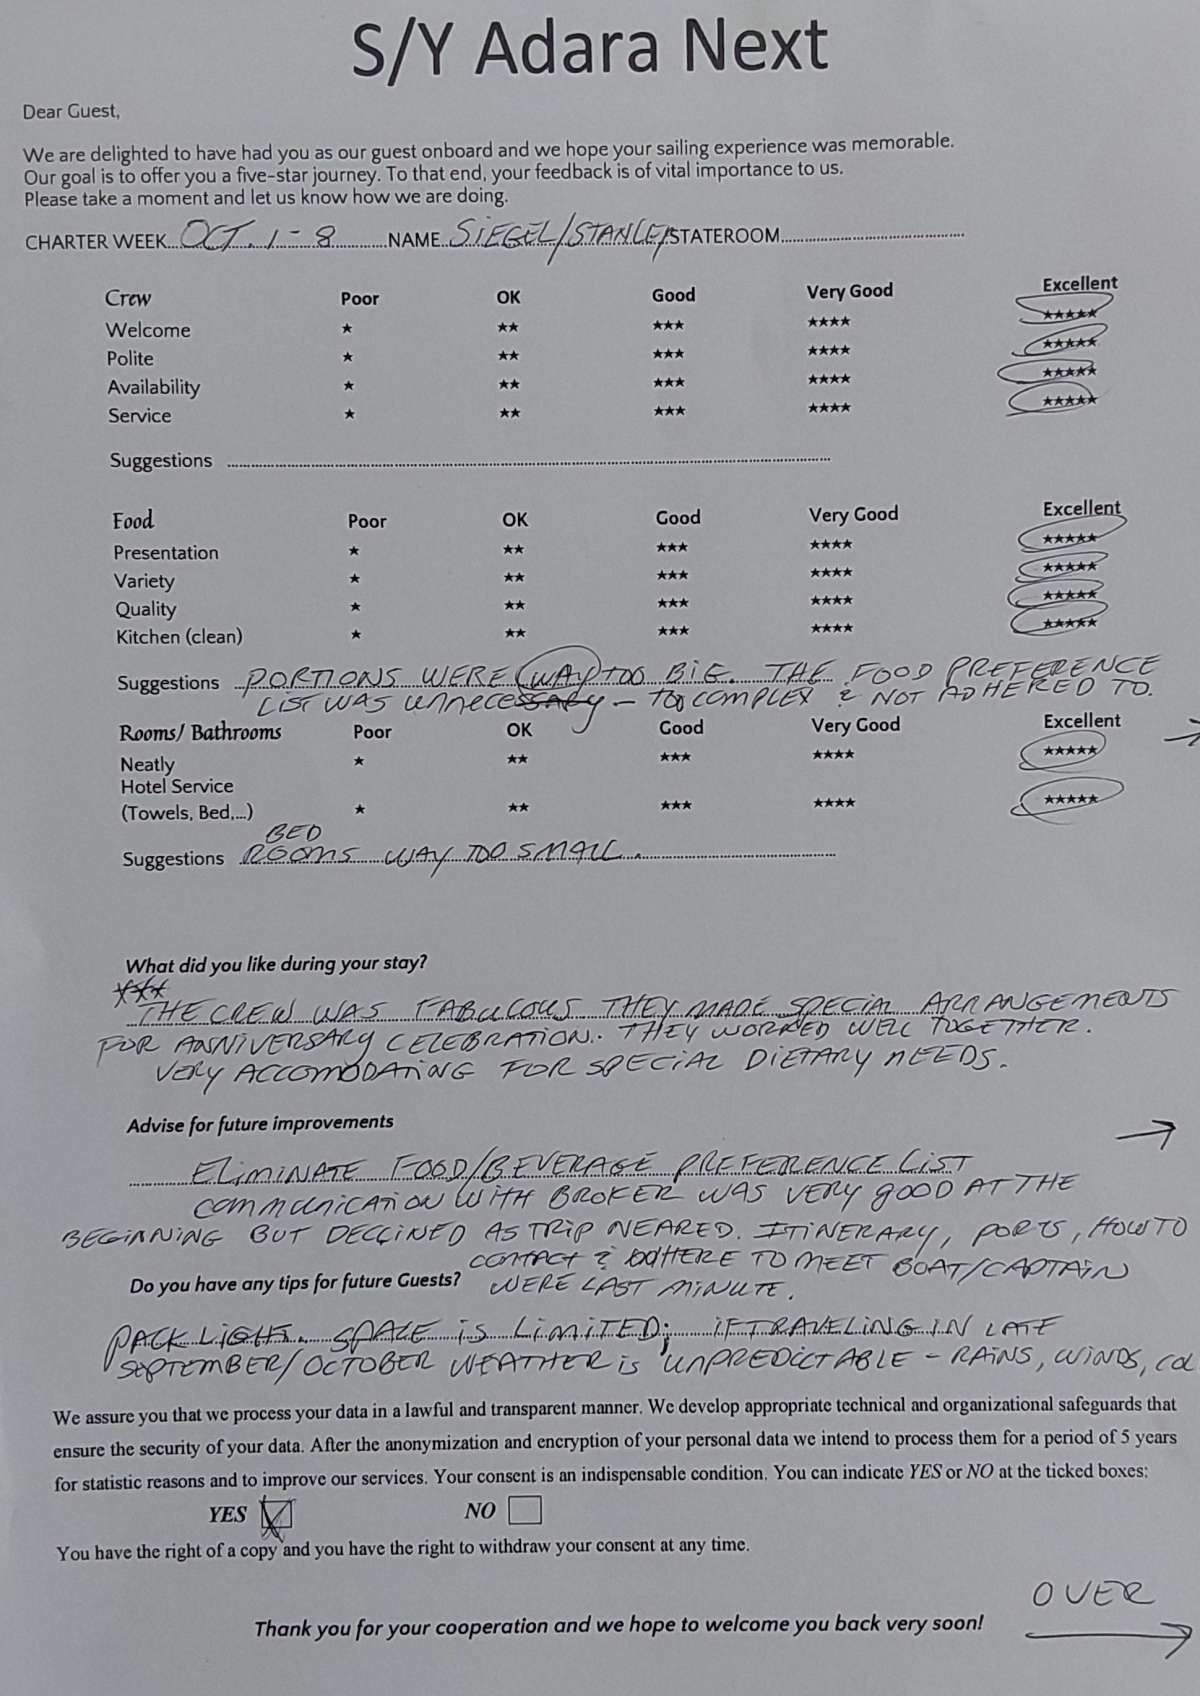 S/Y Adara Next
Dear Guest,
We are delighted to have had you as our guest onboard and we hope your sailing experience was memorable.
Our goal is to offer you a five-star journey. To that end, your feedback is of vital importance to us.
Please take a moment and let us know how we are doing.
CHARTER WEEK OCT. 1-8 NAME SIEGEL/STANLEY STATEROOM
Crew Poor OK Good Very Good Excellent
Welcome ★ ★★ ★★★ ★★★★ ★★★★★
Polite ★ ★★ ★★★ ★★★★ ★★★★★
Availability ★ ★★ ★★★ ★★★★ ★★★★★
Service ★ ★★ ★★★ ★★★★ ★★★★★
Suggestions
Food Poor OK Good Very Good Excellent
Presentation ★ ★★ ★★★ ★★★★ ★★★★★
Variety ★ ★★ ★★★ ★★★★ ★★★★★
Quality ★ ★★ ★★★ ★★★★ ★★★★★
Kitchen (clean) ★ ★★ ★★★ ★★★★ ★★★★★
Suggestions PORTIONS WERE WAY TOO BIG. THE FOOD PREFERENCE
LIST WAS UNNECESSARY – TOO COMPLEX & NOT ADHERED TO.
Rooms/ Bathrooms Poor OK Good Very Good Excellent →
Neatly ★ ★★ ★★★ ★★★★ ★★★★★
Hotel Service
(Towels, Bed,...) ★ ★★ ★★★ ★★★★ ★★★★★
BED
Suggestions ROOMS WAY TOO SMALL.
What did you like during your stay?
***
THE CREW WAS FABULOUS THEY MADE SPECIAL ARRANGEMENTS
FOR ANNIVERSARY CELEBRATION. THEY WORKED WELL TOGETHER.
VERY ACCOMODATING FOR SPECIAL DIETARY NEEDS.
Advise for future improvements →
ELIMINATE FOOD/BEVERAGE PREFERENCE LIST
COMMUNICATION WITH BROKER WAS VERY GOOD AT THE
BEGINNING BUT DECLINED AS TRIP NEARED. ITINERARY, PORTS, HOW TO
CONTACT & WHERE TO MEET BOAT/CAPTAIN
Do you have any tips for future Guests? WERE LAST MINUTE.
PACK LIGHT. SPACE IS LIMITED; IF TRAVELING IN LATE
SEPTEMBER/OCTOBER WEATHER IS UNPREDICTABLE – RAINS, WINDS, COL
We assure you that we process your data in a lawful and transparent manner. We develop appropriate technical and organizational safeguards that
ensure the security of your data. After the anonymization and encryption of your personal data we intend to process them for a period of 5 years
for statistic reasons and to improve our services. Your consent is an indispensable condition. You can indicate YES or NO at the ticked boxes:
YES ☒ NO ☐
You have the right of a copy and you have the right to withdraw your consent at any time.
OVER
Thank you for your cooperation and we hope to welcome you back very soon! →